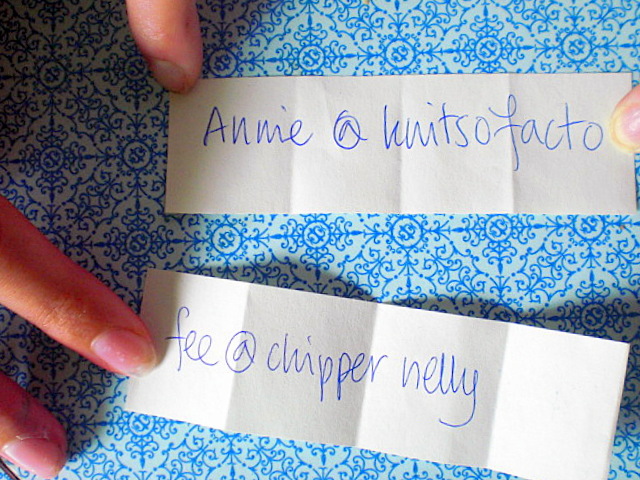 Annie @ knitsofacto
fee @ chipper nelly